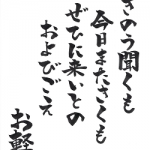 きのう聞くも
今日またさくも
ぜひに来いとの
およびごえ
お軽